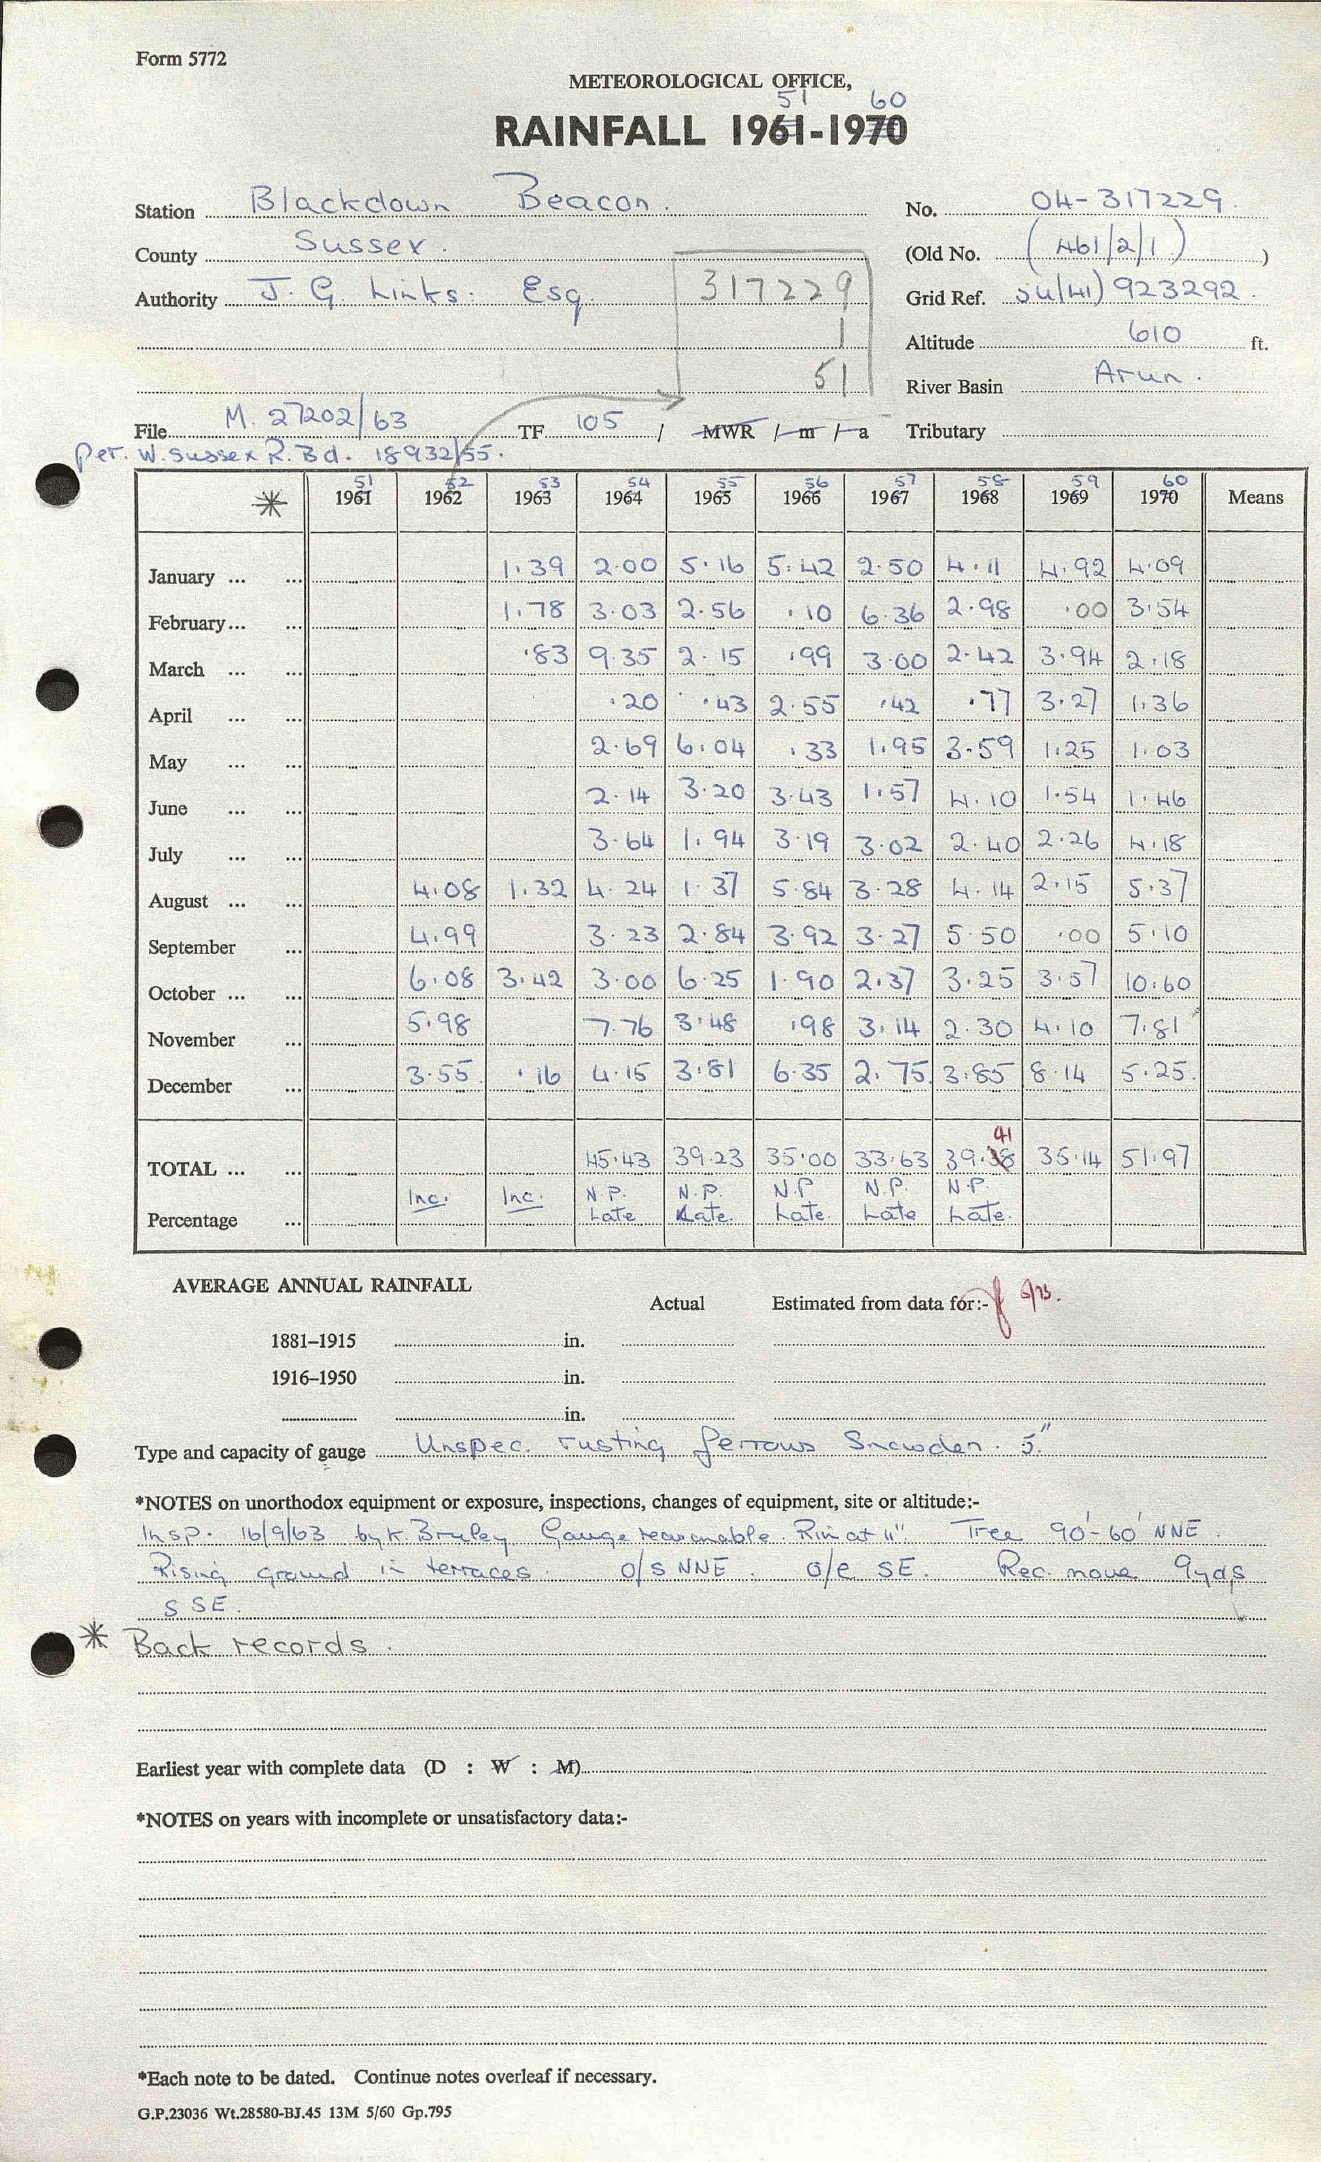 Form 5772
METEOROLOGICAL OFFICE,
51 60
RAINFALL 1961-1970
Station Blackdown Beacon. No. 04-317229.
County Sussex. (Old No. (461/2/1) )
Authority J. G. Links. Esq. 317229 Grid Ref. SU(41) 923292.
1 Altitude 610 ft.
51 River Basin Arun.
File M. 27202/63 TF 105 / MWR / m / a Tributary
Per. W. Sussex R. Bd. 18932/55.
51 52 53 54 55 56 57 58 59 60
* 1961 1962 1963 1964 1965 1966 1967 1968 1969 1970 Means
January ... ... 1.39 2.00 5.16 5.42 2.50 4.11 4.92 4.09
February... ... 1.78 3.03 2.56 .10 6.36 2.98 .00 3.54
March ... ... .83 9.35 2.15 .99 3.00 2.42 3.94 2.18
April ... ... .20 .43 2.55 .42 .77 3.27 1.36
May ... ... 2.69 6.04 .33 1.95 3.59 1.25 1.03
June ... ... 2.14 3.20 3.43 1.57 4.10 1.54 1.46
July ... ... 3.64 1.94 3.19 3.02 2.40 2.26 4.18
August ... ... 4.08 1.32 4.24 1.37 5.84 3.28 4.14 2.15 5.37
September ... 4.99 3.23 2.84 3.92 3.27 5.50 .00 5.10
October ... ... 6.08 3.42 3.00 6.25 1.90 2.37 3.25 3.57 10.60
November ... 5.98 7.76 3.48 .98 3.14 2.30 4.10 7.81
December ... 3.55 .16 4.15 3.81 6.35 2.75 3.85 8.14 5.25
41
TOTAL ... ... 45.43 39.23 35.00 33.63 39.38 35.14 51.97
Inc. Inc. N.P. N.P. N.P N.P. N.P.
Percentage ... Late Late. Late. Late Late.
AVERAGE ANNUAL RAINFALL
Actual Estimated from data for:-
1881–1915 in.
1916–1950 in.
in.
Type and capacity of gauge Unspec. rusting ferrous Snowdon. 5"
*NOTES on unorthodox equipment or exposure, inspections, changes of equipment, site or altitude:-
Insp. 16/9/63 by K. Bruley Gauge reasonable. Rim at 11". Tree 90'-60' NNE.
Rising ground in terraces. o/s NNE. o/e SE. Rec. move 9yds
SSE.
* Back records.
Earliest year with complete data (D : W : M)
*NOTES on years with incomplete or unsatisfactory data:-
*Each note to be dated. Continue notes overleaf if necessary.
G.P.23036 Wt.28580-BJ.45 13M 5/60 Gp.795